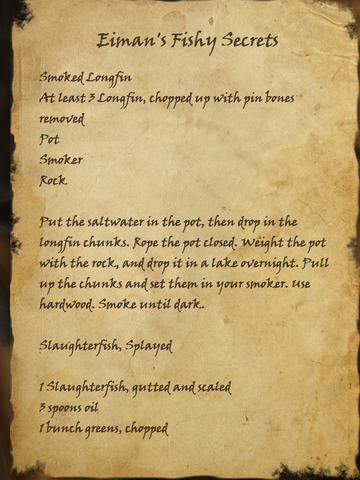 Eiman's Fishy Secrets
Smoked Longfin
At least 3 Longfin, chopped up with pin bones
removed
Pot
Smoker
Rock
Put the saltwater in the pot, then drop in the
longfin chunks. Rope the pot closed. Weight the pot
with the rock, and drop it in a lake overnight. Pull
up the chunks and set them in your smoker. Use
hardwood. Smoke until dark.
Slaughterfish, Splayed
1 Slaughterfish, gutted and scaled
3 spoons oil
1 bunch greens, chopped